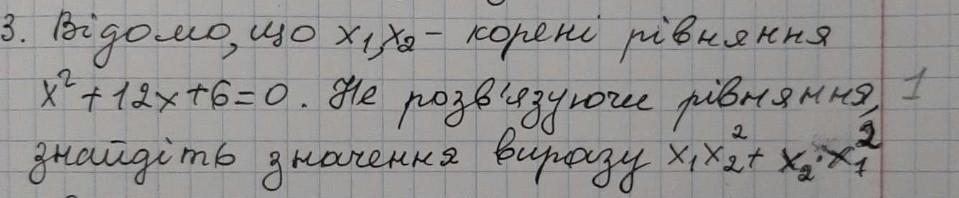 3. Відомо, що x₁,x₂ - корені рівняння
x² + 12x + 6 = 0. Не розв'язуючи рівняння, 1
знайдіть значення виразу x₁x₂² + x₂·x₁²